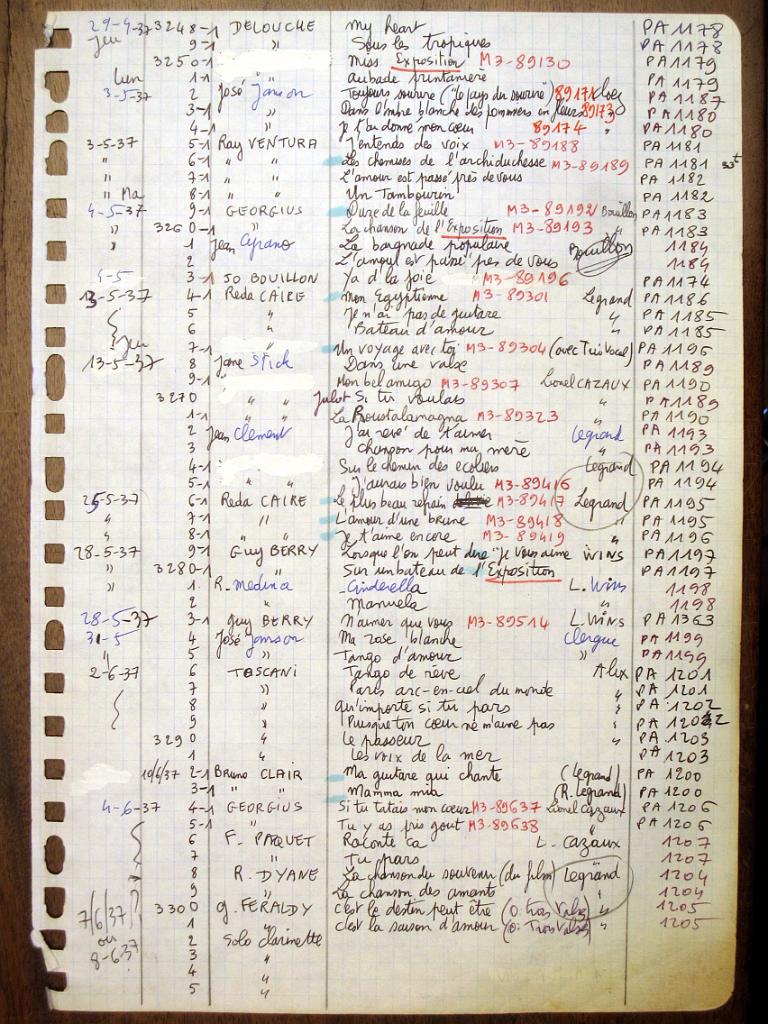 29-4-37 3248-1 DELOUCHE My heart PA 1178
Jeu 9-1 " Sous les tropiques PA 1178
3250-1 Miss Exposition M3-89130 PA 1179
Lun 1-1 " " Aubade printanière PA 1179
3-5-37 2 José Janson Toujours sourire ("le pays du sourire") 89171 PA 1187
3-1 " Dans l'ombre blanche des pommiers en fleurs 89173 PA 1180
4-1 " Je t'ai donné mon cœur 89174 " PA 1180
3-5-37 5-1 Ray VENTURA J'entends des voix M3-89188 PA 1181
" 6-1 " " Les chemises de l'archiduchesse M3-89189 PA 1181
" 7-1 " " L'amour est passé près de vous PA 1182
" Ma 8-1 " " Un Tambourin PA 1182
4-5-37 9-1 GEORGIUS de la feuille M3-89192 Bouillon PA 1183
" 3260-1 " La chanson de l'Exposition M3-89193 " PA 1183
" 1 Jean Cyrano La baignade populaire 1184
2 L'amour est passé près de vous Bouillon 1184
4-5 3-1 JO BOUILLON Ya d'la joie M3-89196 PA 1174
13-5-37 4-1 Reda CAIRE Mon Egyptienne M3-89301 Legrand PA 1186
5 " Je n'ai pas de guitare " PA 1185
6 " Bateau d'amour " PA 1185
Jeu 7-1 " Un voyage avec toi M3-89304 (avec Trio vocal) PA 1196
13-5-37 8 Jane Stick Dans une valse PA 1189
9-1 Mon bel amigo M3-89307 Lionel CAZAUX PA 1190
3270 " " Si tu voulais " PA 1189
1-1 " " La Roustalamagna M3-89323 " PA 1190
2 Jean Clément J'ai rêvé de t'aimer Legrand PA 1193
3 Chanson pour ma mère " PA 1193
4-1 Sur le chemin des écoliers Legrand PA 1194
5-1 " " J'aurais bien voulu M3-89416 PA 1194
25-5-37 6-1 Reda CAIRE Le plus beau refrain M3-89417 Legrand PA 1195
" 7-1 " L'amour d'une brune M3-89418 " PA 1195
" 8-1 " Je t'aime encore M3-89419 " PA 1196
28-5-37 9-1 Guy BERRY Lorsque l'on peut dire "je vous aime WINS PA 1197
" 3280-1 " Sur un bateau de l'Exposition PA 1197
" 1 R. Medina Cinderella L. Wins 1198
2 " Manuela " 1198
28-5-37 3-1 Guy BERRY N'aimer que vous M3-89514 L. WINS PA 1363
31-5 4 José Janson Ma rose blanche Clergue PA 1199
" 5 " Tango d'amour " PA 1199
2-6-37 6 TOSCANI Tango de rêve Alix PA 1201
7 " Paris arc-en-ciel du monde " PA 1201
8 " Qu'importe si tu pars " PA 1202
9 " Puisque ton cœur ne m'aime pas " PA 1202
3290 " Le passeur " PA 1203
1 " Les voix de la mer " PA 1203
10/6/37 2-1 Bruno CLAIR Ma guitare qui chante (Legrand) PA 1200
3-1 " " Mamma mia (R. Legrand) PA 1200
4-6-37 4-1 GEORGIUS Si tu tâtais mon cœur M3-89637 Lionel Cazaux PA 1206
5-1 " Tu y as pris goût M3-89638 " PA 1206
6 F. PAQUET Raconte ça L. CAZAUX 1207
7 " Tu pars 1207
8 R. DYANE La chanson du souvenir (du film) Legrand 1204
9 " La chanson des amants " 1204
7/6/37 ? 3300 G. FERALDY C'est le destin peut être (O: Trois Valses) " 1205
ou 1 " C'est la saison d'amour (O: Trois Valses) " 1205
8-6-37 2 Solo Clarinette
3 "
4 "
5 "